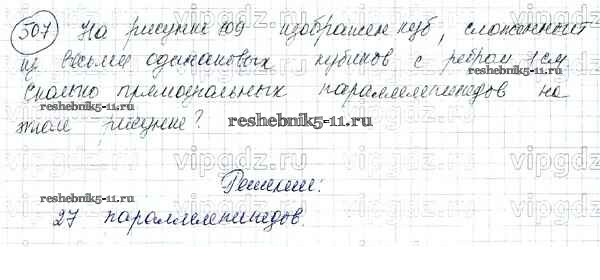 507 На рисунке 109 изображен куб, сложенный
из восьми одинаковых кубиков с ребром 1 см.
Сколько прямоугольных параллелепипедов на
этом рисунке?
reshebnik5-11.ru
reshebnik5-11.ru
Решение:
reshebnik5-11.ru
27 параллелепипедов.
vipgdz.ru